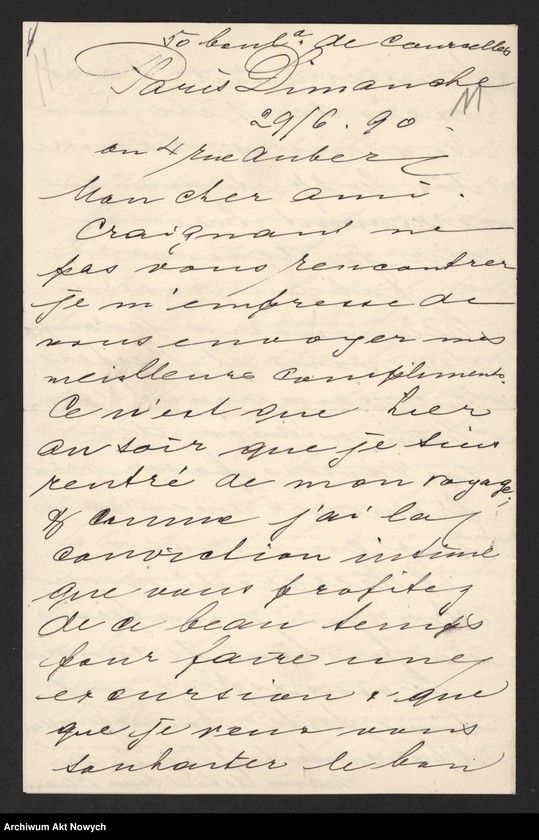 50 boul.d de Courcelles
Paris Dimanche
29/6. 90
ou 4 rue Auber
Mon cher ami.
Craignant ne
pas vous rencontrer
je m'empresse de
vous envoyer mes
meilleurs compliments.
Ce n'est que hier
au soir que je suis
rentré de mon voyage,
& comme j'ai la
conviction intime
que vous profitez
de ce beau temps
pour faire une
excursion & que
que je veux vous
souhaiter le bon
Archiwum Akt Nowych